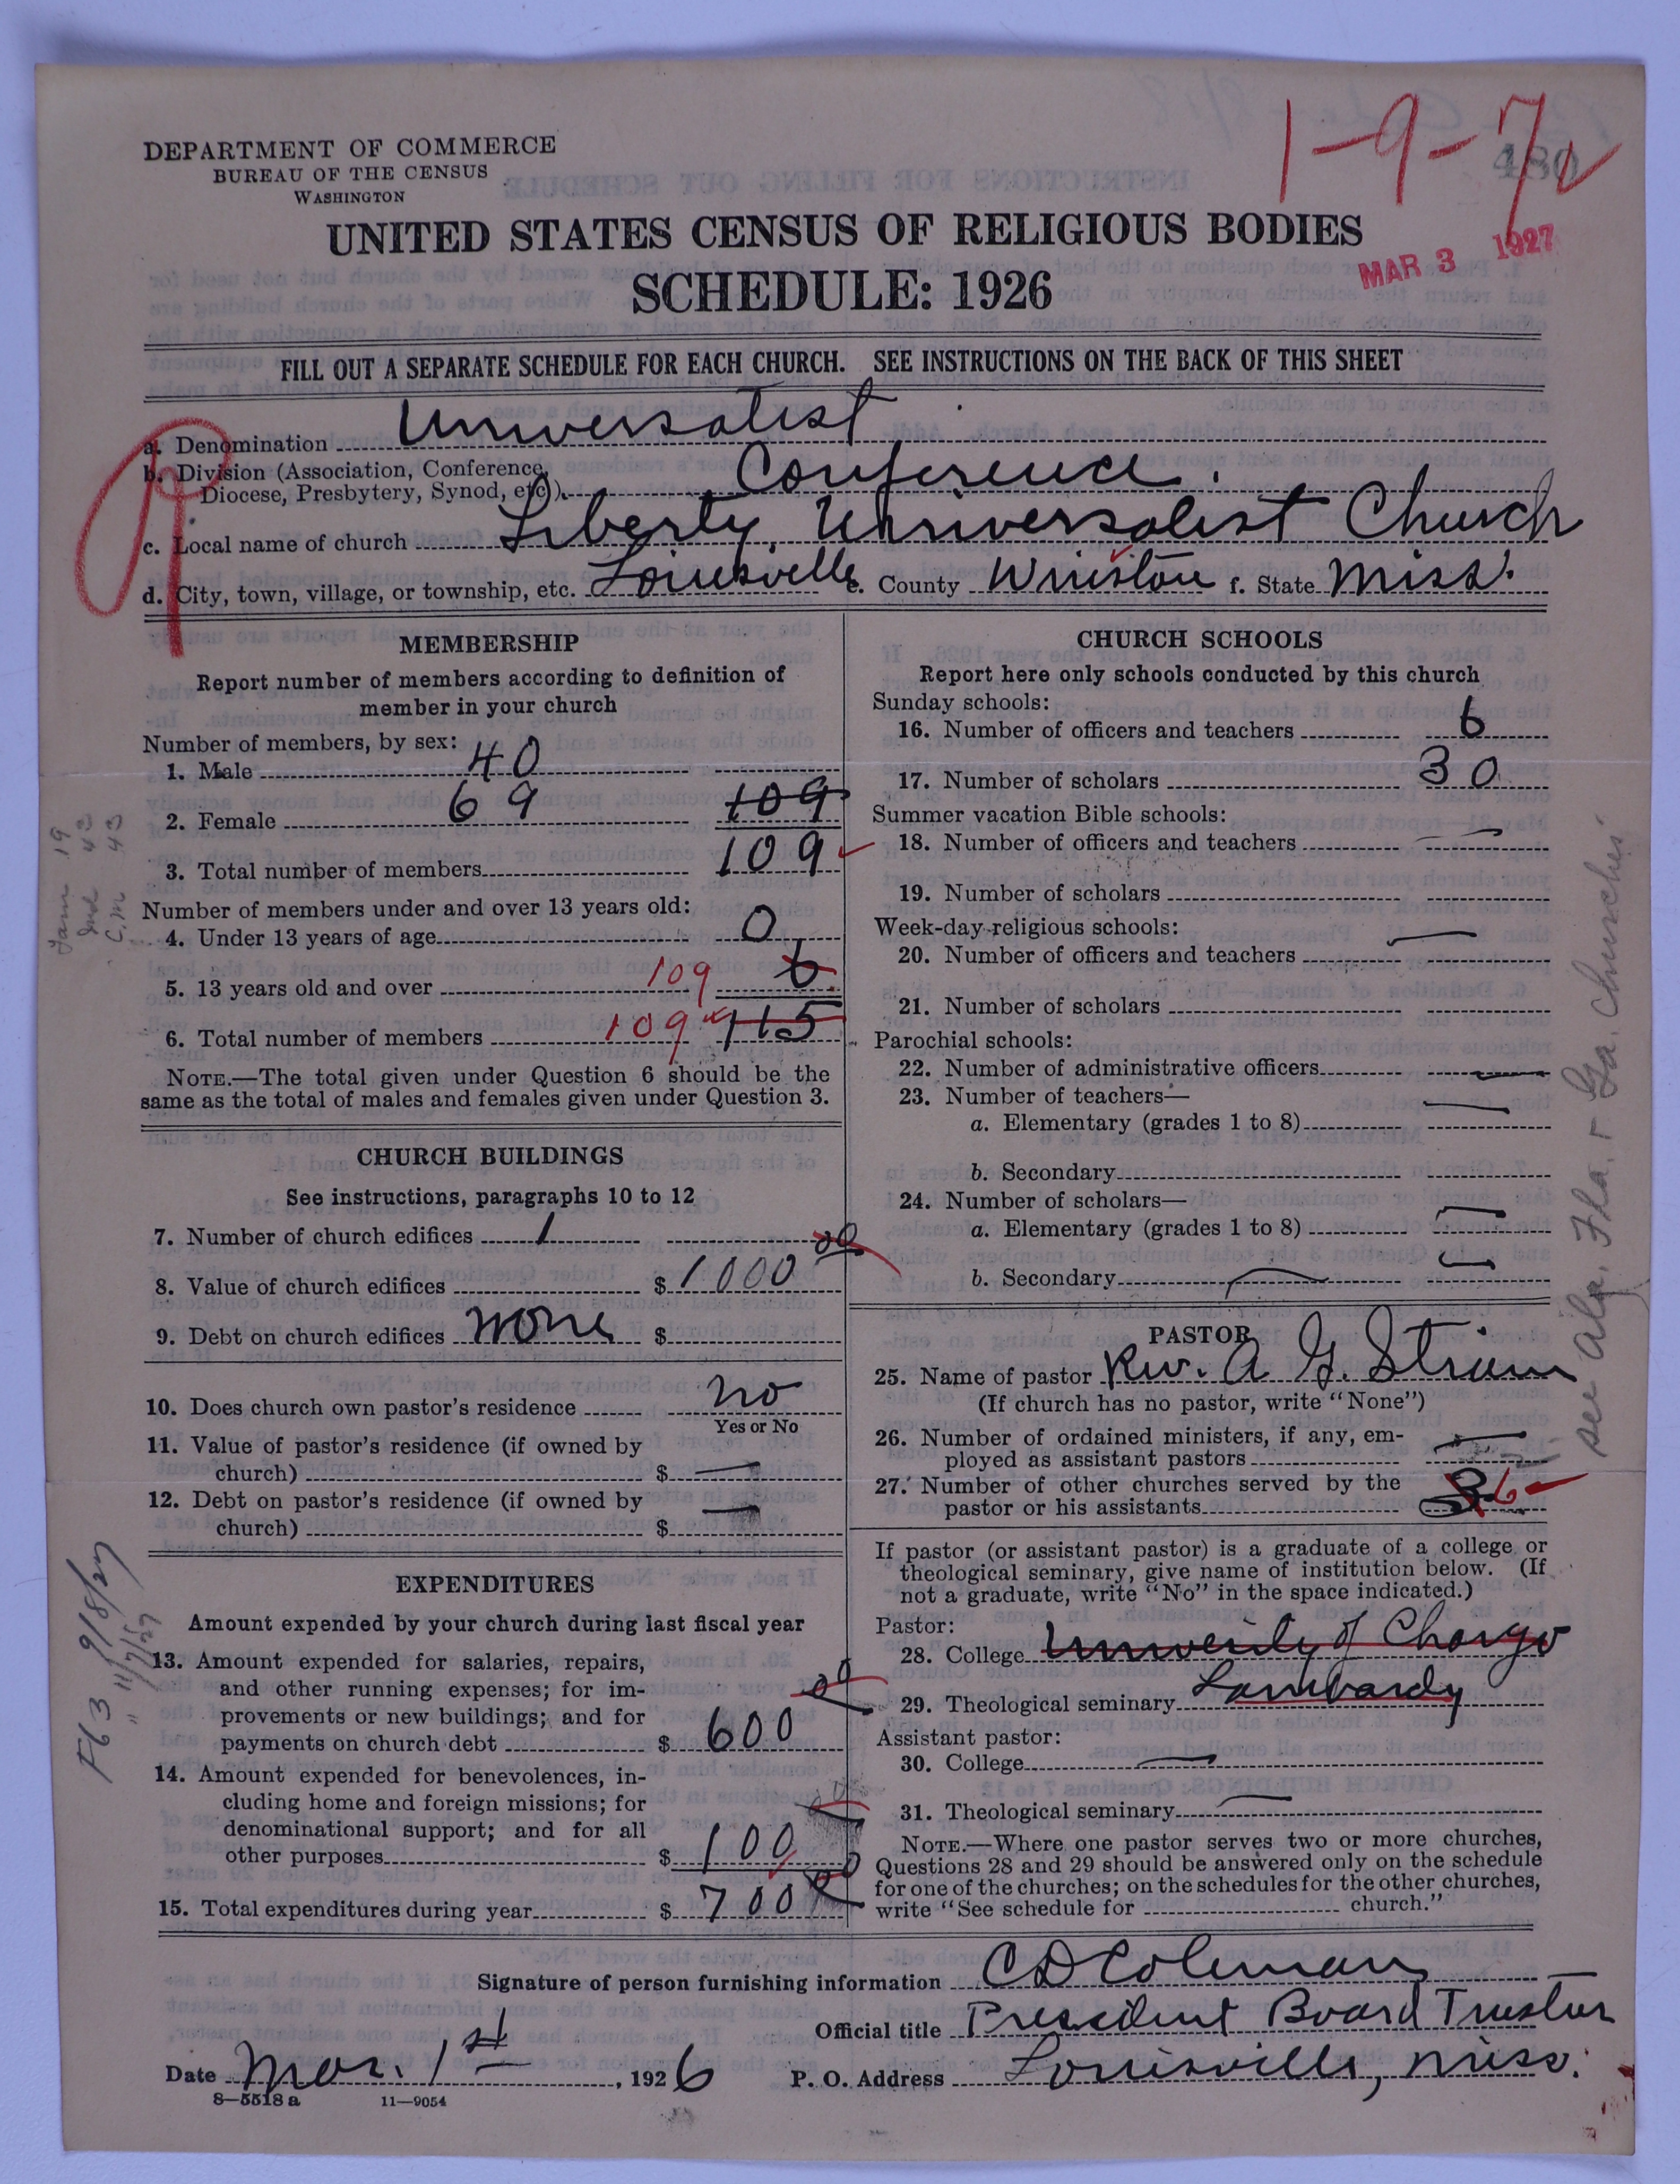 1-9-7
480
DEPARTMENT OF COMMERCE
BUREAU OF THE CENSUS
WASHINGTON
UNITED STATES CENSUS OF RELIGIOUS BODIES
MAR 3 1927
SCHEDULE: 1926
FILL OUT A SEPARATE SCHEDULE FOR EACH CHURCH. SEE INSTRUCTIONS ON THE BACK OF THIS SHEET
a. Denomination Universalist
b. Division (Association, Conference,
Diocese, Presbytery, Synod, etc.) Conference.
c. Local name of church Liberty, Universalist Church
d. City, town, village, or township, etc. Louisville e. County Winston f. State Miss.
MEMBERSHIP
Report number of members according to definition of
member in your church
Number of members, by sex:
1. Male 40
2. Female 69 109
3. Total number of members 109
Number of members under and over 13 years old:
4. Under 13 years of age 0
5. 13 years old and over 109 6
6. Total number of members 109 115
NOTE.—The total given under Question 6 should be the
same as the total of males and females given under Question 3.
CHURCH BUILDINGS
See instructions, paragraphs 10 to 12
7. Number of church edifices 1
8. Value of church edifices $ 1000 00
9. Debt on church edifices none $
10. Does church own pastor's residence no
Yes or No
11. Value of pastor's residence (if owned by
church) $ —
12. Debt on pastor's residence (if owned by
church) $ —
EXPENDITURES
Amount expended by your church during last fiscal year
13. Amount expended for salaries, repairs,
and other running expenses; for im-
provements or new buildings; and for
payments on church debt $ 600 00
14. Amount expended for benevolences, in-
cluding home and foreign missions; for
denominational support; and for all
other purposes $ 100 00
15. Total expenditures during year $ 700 00
CHURCH SCHOOLS
Report here only schools conducted by this church
Sunday schools:
16. Number of officers and teachers 6
17. Number of scholars 30
Summer vacation Bible schools:
18. Number of officers and teachers —
19. Number of scholars
Week-day religious schools:
20. Number of officers and teachers —
21. Number of scholars
Parochial schools:
22. Number of administrative officers —
23. Number of teachers—
a. Elementary (grades 1 to 8) —
b. Secondary
24. Number of scholars—
a. Elementary (grades 1 to 8) —
b. Secondary —
PASTOR
25. Name of pastor Rev. A G. Strain
(If church has no pastor, write "None")
26. Number of ordained ministers, if any, em-
ployed as assistant pastors —
27. Number of other churches served by the
pastor or his assistants 3 6
If pastor (or assistant pastor) is a graduate of a college or
theological seminary, give name of institution below. (If
not a graduate, write "No" in the space indicated.)
Pastor:
28. College University of Chargo
29. Theological seminary Lombardy
Assistant pastor:
30. College —
31. Theological seminary —
NOTE.—Where one pastor serves two or more churches,
Questions 28 and 29 should be answered only on the schedule
for one of the churches; on the schedules for the other churches,
write "See schedule for church."
Signature of person furnishing information C D Coleman
Official title President Board Trustees
Date Mar. 1st, 1926 P. O. Address Louisville, Miss.
8—5518 a 11—9054
19
Ind 43
C.M 43
F63 9/8/27
" 11/7/29
see Ala, Fla. + Ga. Churches